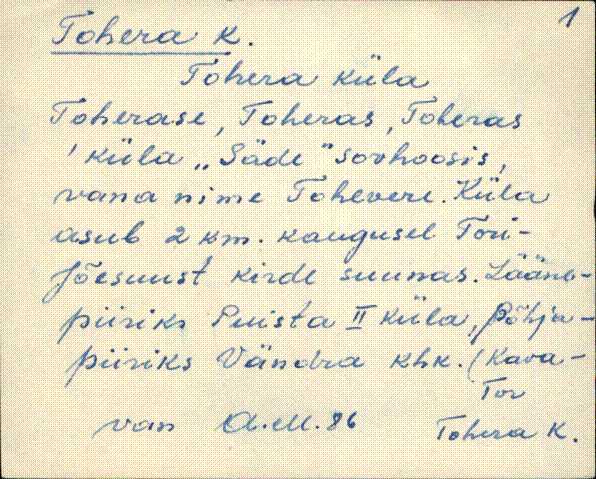 1
Tohera k.
Tohera küla
Toherase, Toheras, Toheras
' küla „Säde" sovhoosis,
vana nime Tohevere. Küla
asub 2 km. kaugusel Tori-
Jõesuust kirde suunas. Lääne-
piiriks Puista II küla, põhja-
piiriks Vändra khk. (Kava-
Tor
van A.M. 86 Tohera K.